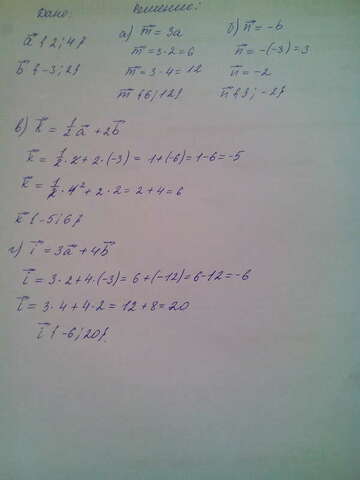 Дано: Решение:
a⃗ {2; 4}
b⃗ {-3; 2}
а) m⃗ = 3a
m⃗ = 3·2 = 6
m⃗ = 3·4 = 12
m⃗ {6; 12}
б) n⃗ = -b
n⃗ = -(-3) = 3
n⃗ = -2
n⃗ {3; -2}
в) k⃗ = 1/2 a⃗ + 2b⃗
k⃗ = 1/2 · 2 + 2·(-3) = 1+(-6) = 1-6 = -5
k⃗ = 1/2 · 4² + 2·2 = 2+4 = 6
k⃗ {-5; 6}
г) i⃗ = 3a⃗ + 4b⃗
i⃗ = 3·2+4·(-3) = 6+(-12) = 6-12 = -6
i⃗ = 3·4+4·2 = 12+8 = 20
i⃗ {-6; 20}.